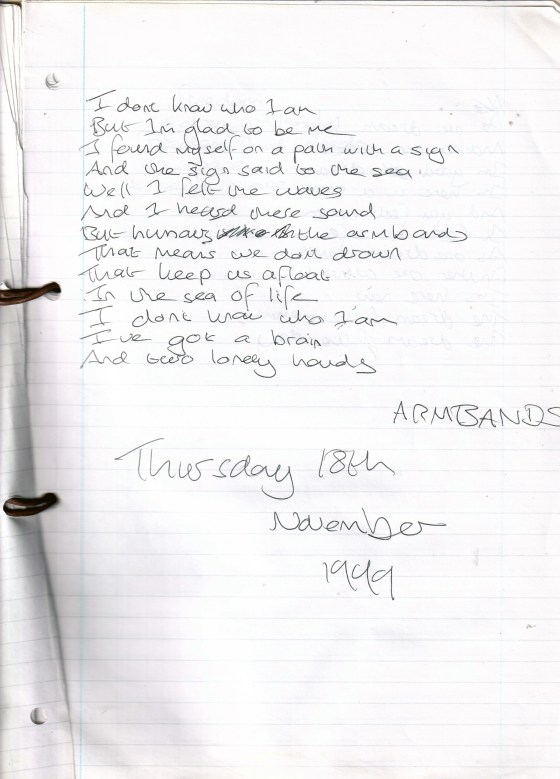 I dont know who I am
But Im glad to be me
I found myself on a path with a sign
And the sign said to the sea.
Well I felt the waves
And I heard there sound
But humans the armbands
That means we dont drown
That keep us afloat
In the sea of life
I dont know who I am
I've got a brain
And two lonely hands
ARMBANDS
Thursday 18th
November
1999